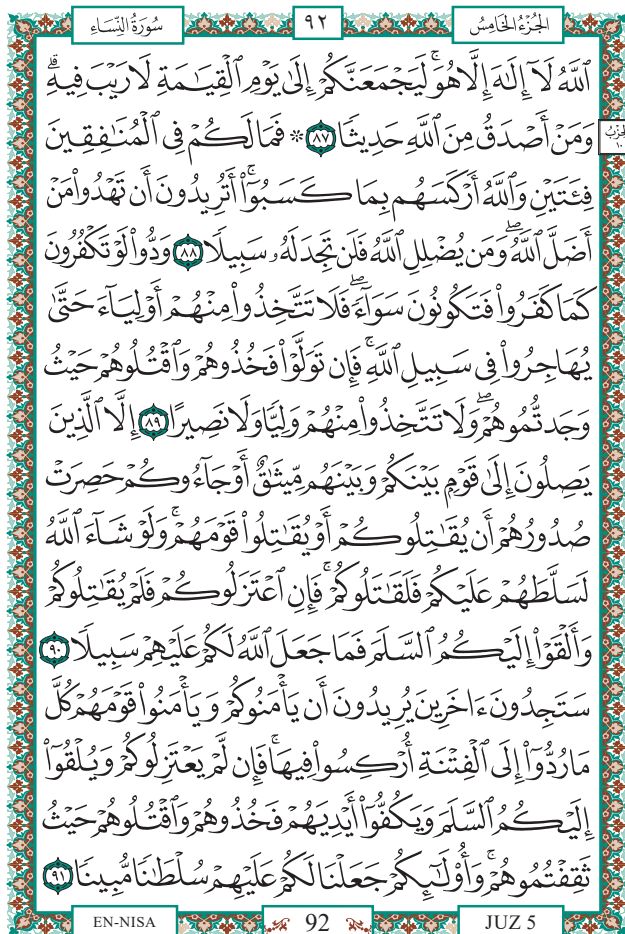 سُورَةُ النِّسَاءِ ٩٢ الجُزْءُ الخَامِسُ
ٱللَّهُ لَآ إِلَـٰهَ إِلَّا هُوَۚ لَيَجْمَعَنَّكُمْ إِلَىٰ يَوْمِ ٱلْقِيَـٰمَةِ لَا رَيْبَ فِيهِۗ
وَمَنْ أَصْدَقُ مِنَ ٱللَّهِ حَدِيثًا ٨٧ ۞ فَمَا لَكُمْ فِى ٱلْمُنَـٰفِقِينَ
فِئَتَيْنِ وَٱللَّهُ أَرْكَسَهُم بِمَا كَسَبُوٓا۟ۚ أَتُرِيدُونَ أَن تَهْدُوا۟ مَنْ
أَضَلَّ ٱللَّهُۖ وَمَن يُضْلِلِ ٱللَّهُ فَلَن تَجِدَ لَهُۥ سَبِيلًا ٨٨ وَدُّوا۟ لَوْ تَكْفُرُونَ
كَمَا كَفَرُوا۟ فَتَكُونُونَ سَوَآءًۖ فَلَا تَتَّخِذُوا۟ مِنْهُمْ أَوْلِيَآءَ حَتَّىٰ
يُهَاجِرُوا۟ فِى سَبِيلِ ٱللَّهِۚ فَإِن تَوَلَّوْا۟ فَخُذُوهُمْ وَٱقْتُلُوهُمْ حَيْثُ
وَجَدتُّمُوهُمْۖ وَلَا تَتَّخِذُوا۟ مِنْهُمْ وَلِيًّا وَلَا نَصِيرًا ٨٩ إِلَّا ٱلَّذِينَ
يَصِلُونَ إِلَىٰ قَوْمِۭ بَيْنَكُمْ وَبَيْنَهُم مِّيثَـٰقٌ أَوْ جَآءُوكُمْ حَصِرَتْ
صُدُورُهُمْ أَن يُقَـٰتِلُوكُمْ أَوْ يُقَـٰتِلُوا۟ قَوْمَهُمْۚ وَلَوْ شَآءَ ٱللَّهُ
لَسَلَّطَهُمْ عَلَيْكُمْ فَلَقَـٰتَلُوكُمْۚ فَإِنِ ٱعْتَزَلُوكُمْ فَلَمْ يُقَـٰتِلُوكُمْ
وَأَلْقَوْا۟ إِلَيْكُمُ ٱلسَّلَمَ فَمَا جَعَلَ ٱللَّهُ لَكُمْ عَلَيْهِمْ سَبِيلًا ٩٠
سَتَجِدُونَ ءَاخَرِينَ يُرِيدُونَ أَن يَأْمَنُوكُمْ وَيَأْمَنُوا۟ قَوْمَهُمْ كُلَّ
مَا رُدُّوٓا۟ إِلَى ٱلْفِتْنَةِ أُرْكِسُوا۟ فِيهَاۚ فَإِن لَّمْ يَعْتَزِلُوكُمْ وَيُلْقُوٓا۟
إِلَيْكُمُ ٱلسَّلَمَ وَيَكُفُّوٓا۟ أَيْدِيَهُمْ فَخُذُوهُمْ وَٱقْتُلُوهُمْ حَيْثُ
ثَقِفْتُمُوهُمْۚ وَأُو۟لَـٰٓئِكُمْ جَعَلْنَا لَكُمْ عَلَيْهِمْ سُلْطَـٰنًا مُّبِينًا ٩١
EN-NISA 92 JUZ 5